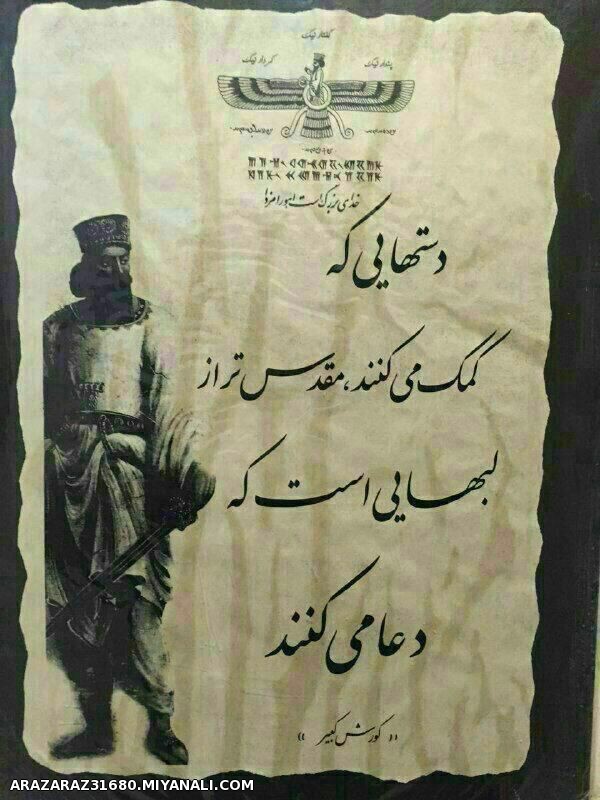 گفتار نیک
پندار نیک
کردار نیک
خدای بزرگ است اهورامزدا
دستهایی که
کمک می کنند، مقدس تر از
لبهایی است که
دعا می کنند
«کورش کبیر»
ARAZARAZ31680.MIYANALI.COM